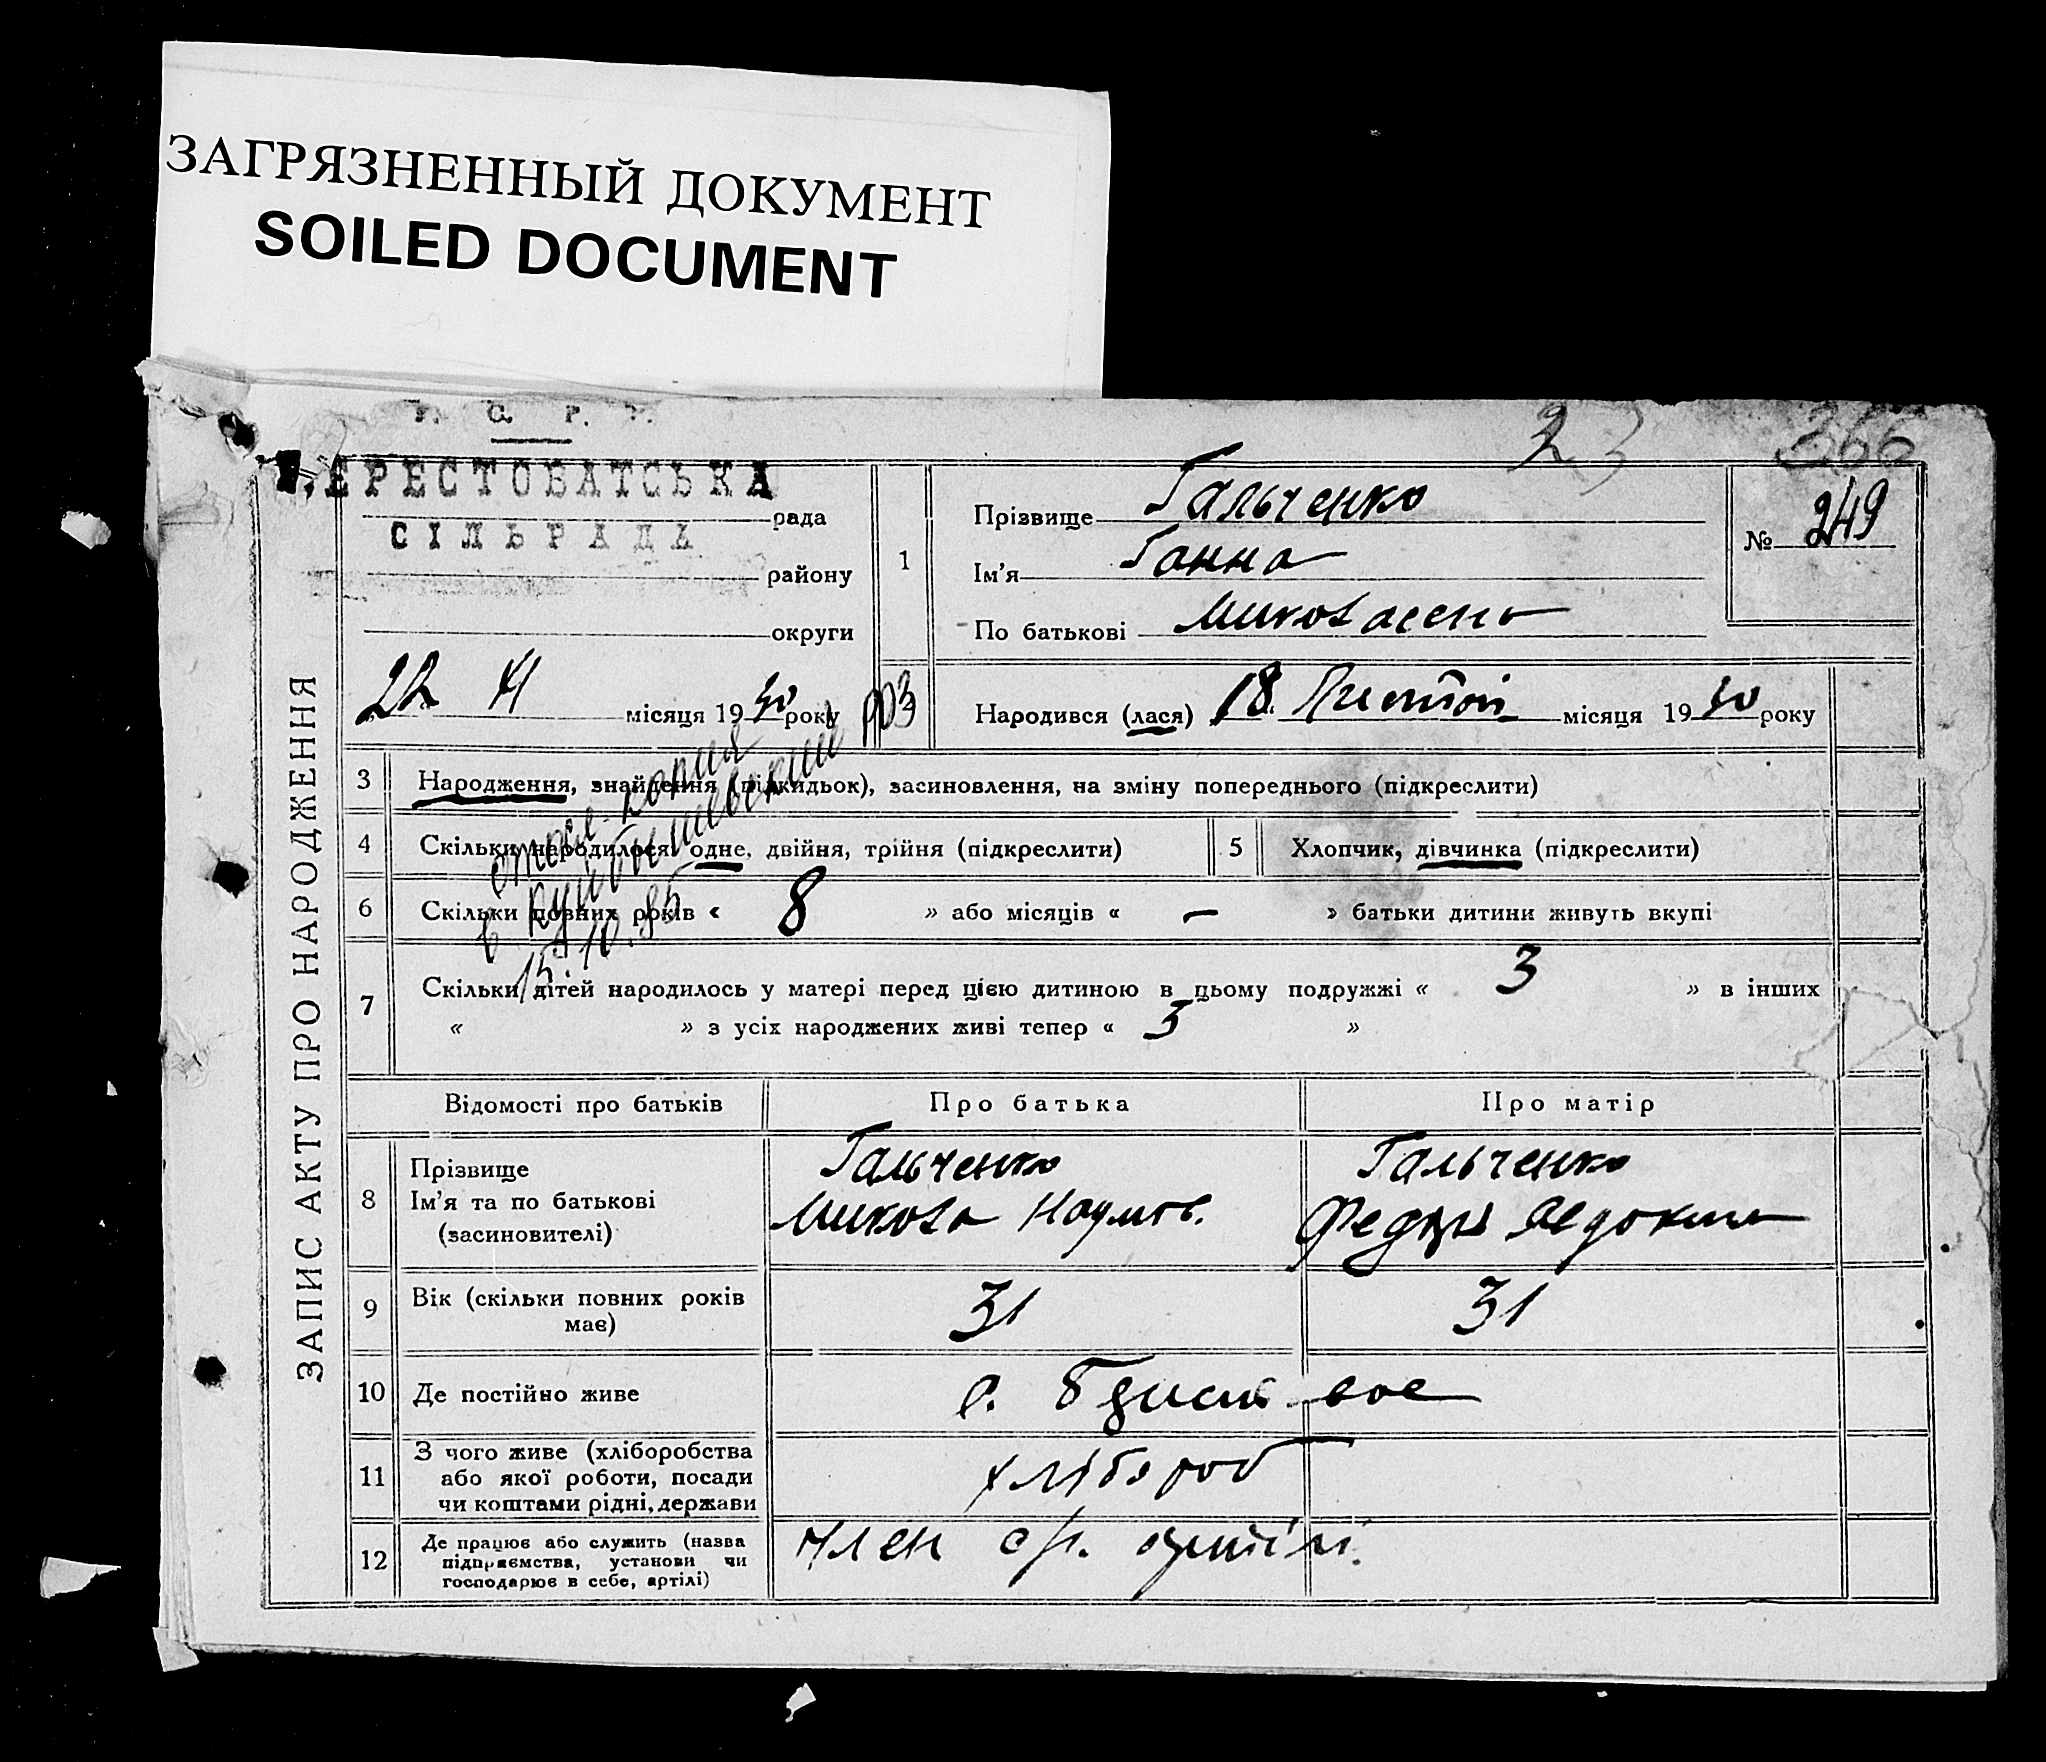 ЗАГРЯЗНЕННЫЙ ДОКУМЕНТ
SOILED DOCUMENT
23 366
БЕРЕСТОВАТСЬКА
рада
СІЛЬРАДА
району
округи
22 XI місяця 1930 року
РОЗ
1
Прізвище Гальченко
Ім’я Ганна
По батькові
№ 249
Народився (лася) 18 місяця 1930 року
ЗАПИС АКТУ ПРО НАРОДЖЕННЯ
3 Народження, знайдення (підкидьок), засиновлення, на зміну попереднього (підкреслити)
4 Скільки народилося: одне, двійня, трійня (підкреслити) 5 Хлопчик, дівчинка (підкреслити)
6 Скільки повних років « 8 » або місяців « — » батьки дитини живуть вкупі
копия
в куйбышевский
15.10.85
7 Скільки дітей народилось у матері перед цією дитиною в цьому подружжі « 3 » в інших
« » з усіх народжених живі тепер « 3 »
Відомості про батьків Про батька Про матір
8 Прізвище
Ім’я та по батькові
(засиновителі)
Гальченко
Микола Наумов.
Гальченко
9 Вік (скільки повних років
має)
31 31
10 Де постійно живе с.
11 З чого живе (хліборобства
або якої роботи, посади
чи коштами рідні, держави
хлібороб
12 Де працює або служить (назва
підприємства, установи чи
господарює в себе, артілі)
член с/г. артілі.